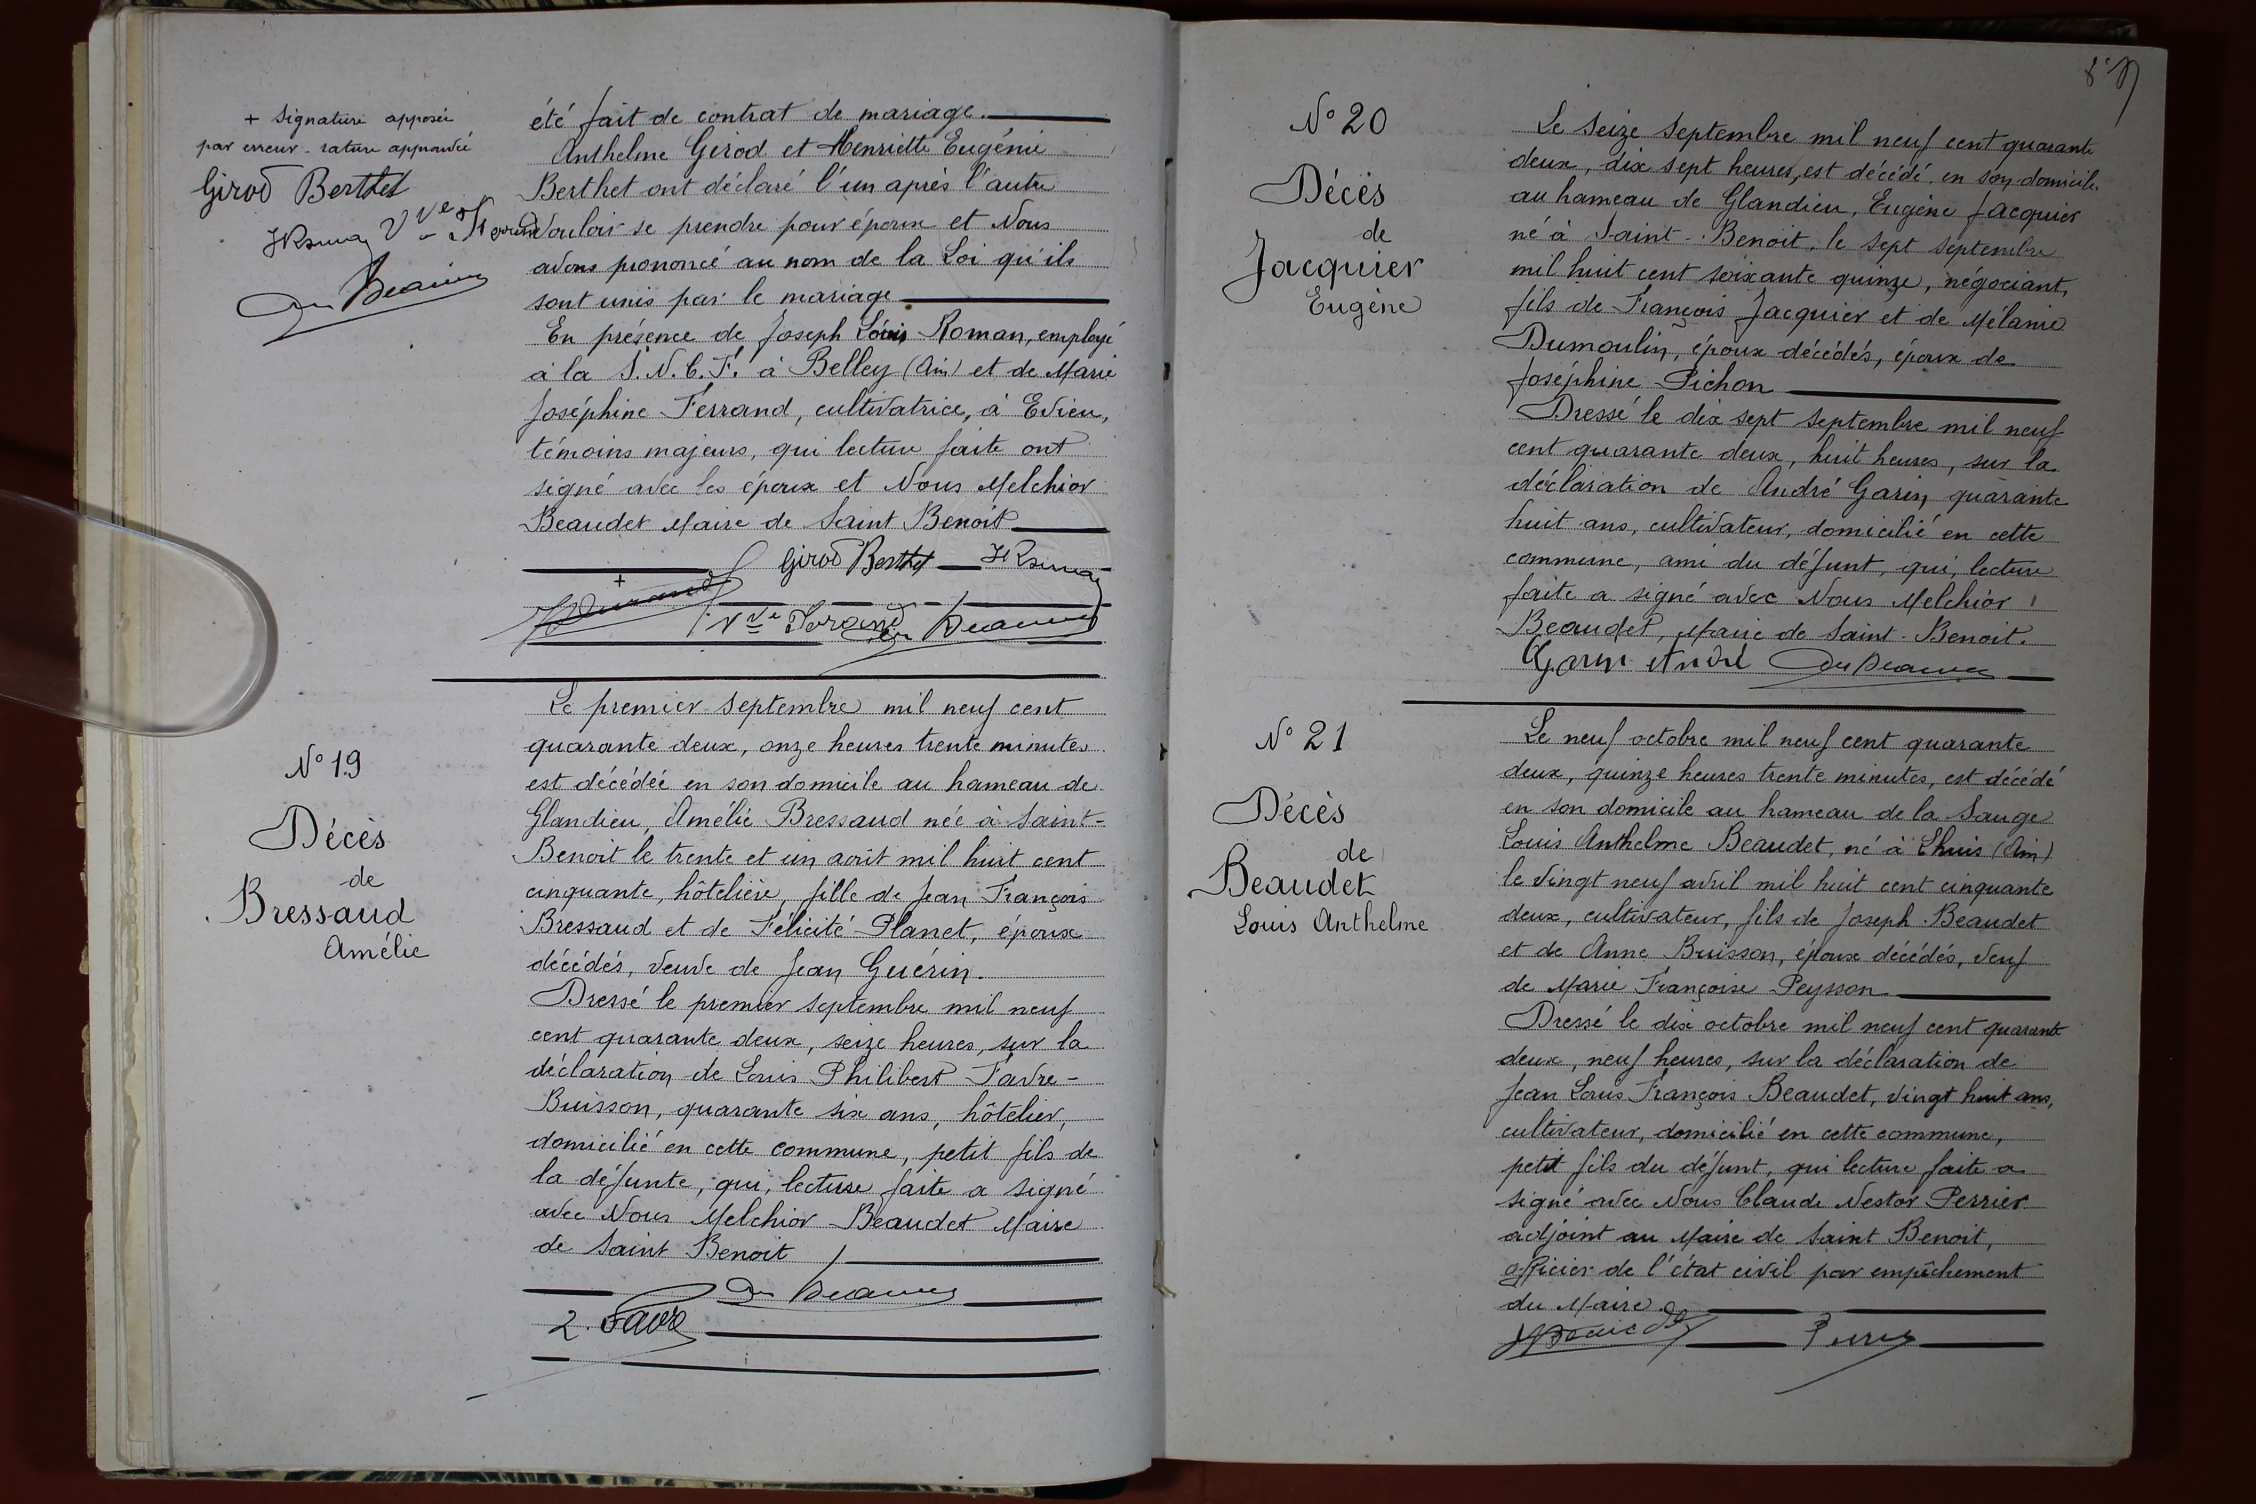 + Signature apposée
par erreur - rature approuvée
Girod Berthet
Vve Ferrand
été fait de contrat de mariage.
Anthelme Girod et Henriette Eugénie
Berthet ont déclaré l'un après l'autre
vouloir se prendre pour époux et Nous
avons prononcé au nom de la Loi qu'ils
sont unis par le mariage
En présence de Joseph Louis Roman, employé
à la S.N.C.F. à Belley (Ain) et de Marie
Joséphine Ferrand, cultivatrice, à Evieu,
témoins majeurs, qui lecture faite ont
signé avec les époux et Nous Melchior
Beaudet Maire de Saint Benoit
Girod Berthet
+
Vve Ferrand
N° 19
Décès
de
Bressaud
Amélie
Le premier septembre mil neuf cent
quarante deux, onze heures trente minutes
est décédée en son domicile au hameau de
Glandieu, Amélie Bressaud née à Saint-
Benoit le trente et un août mil huit cent
cinquante, hôtelière, fille de Jean François
Bressaud et de Félicité Planet, époux
décédés, veuve de Jean Guérin.
Dressé le premier septembre mil neuf
cent quarante deux, seize heures, sur la
déclaration de Louis Philibert Favre-
Buisson, quarante six ans, hôtelier,
domicilié en cette commune, petit fils de
la défunte, qui, lecture faite a signé
avec Nous Melchior Beaudet Maire
de Saint Benoit
L. Favre
N° 20
Décès
de
Jacquier
Eugène
Le seize septembre mil neuf cent quarante
deux, dix sept heures, est décédé en son domicile
au hameau de Glandieu, Eugène Jacquier
né à Saint-Benoit, le sept septembre
mil huit cent soixante quinze, négociant,
fils de François Jacquier et de Mélanie
Dumoulin, époux décédés, époux de
Joséphine Pichon
Dressé le dix sept septembre mil neuf
cent quarante deux, huit heures, sur la
déclaration de André Garin, quarante
huit ans, cultivateur, domicilié en cette
commune, ami du défunt, qui, lecture
faite a signé avec Nous Melchior
Beaudet, Maire de Saint-Benoit.
Garin André
N° 21
Décès
de
Beaudet
Louis Anthelme
Le neuf octobre mil neuf cent quarante
deux, quinze heures trente minutes, est décédé
en son domicile au hameau de la Sauge
Louis Anthelme Beaudet, né à Lhuis (Ain)
le vingt neuf avril mil huit cent cinquante
deux, cultivateur, fils de Joseph Beaudet
et de Anne Buisson, époux décédés, veuf
de Marie Françoise Peysson
Dressé le dix octobre mil neuf cent quarante
deux, neuf heures, sur la déclaration de
Jean Louis François Beaudet, vingt huit ans,
cultivateur, domicilié en cette commune,
petit fils du défunt, qui lecture faite a
signé avec Nous Claude Nestor Perrier
adjoint au Maire de Saint Benoit,
officier de l'état civil par empêchement
du Maire.